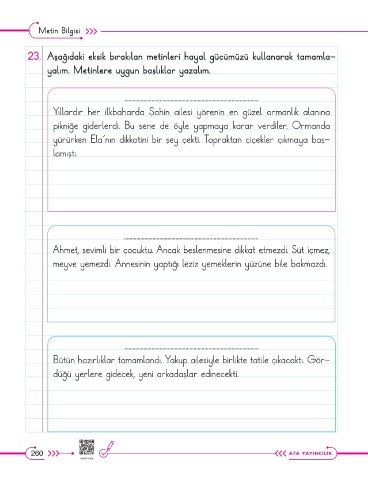 Metin Bilgisi
23. Aşağıdaki eksik bırakılan metinleri hayal gücümüzü kullanarak tamamla-
yalım. Metinlere uygun başlıklar yazalım.
Yıllardır her ilkbaharda Şahin ailesi yörenin en güzel ormanlık alanına
pikniğe giderlerdi. Bu sene de öyle yapmaya karar verdiler. Ormanda
yürürken Ela'nın dikkatini bir şey çekti. Topraktan çiçekler çıkmaya baş-
lamıştı.
Ahmet, sevimli bir çocuktu. Ancak beslenmesine dikkat etmezdi. Süt içmez,
meyve yemezdi. Annesinin yaptığı leziz yemeklerin yüzüne bile bakmazdı.
Bütün hazırlıklar tamamlandı. Yakup ailesiyle birlikte tatile çıkacaktı. Gör-
düğü yerlere gidecek, yeni arkadaşlar edinecekti.
260
ATA YAYINCILIK